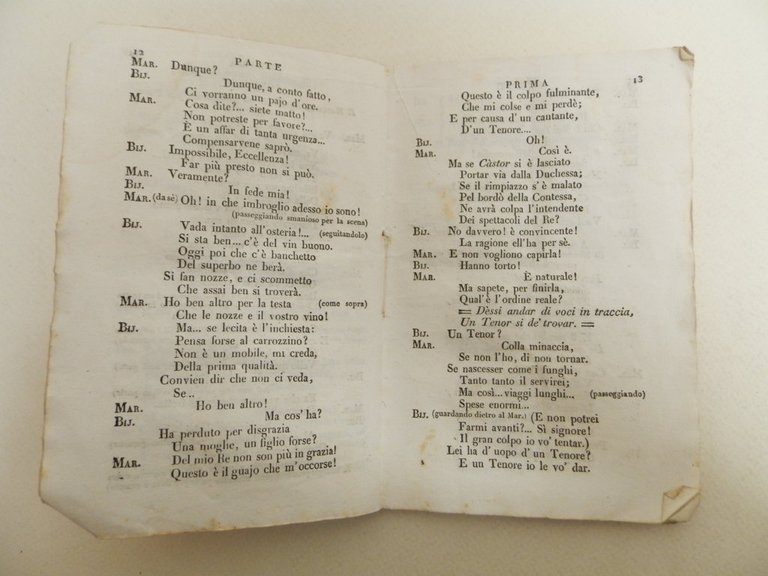 12
PARTE
MAR. Dunque?
BIJ. Dunque, a conto fatto,
Ci vorranno un pajo d'ore.
MAR. Cosa dite?... siete matto!
Non potreste per favore?...
È un affar di tanta urgenza...
Compensarvene saprò.
BIJ. Impossibile, Eccellenza!
Far più presto non si può.
MAR. Veramente?
BIJ. In fede mia!
MAR. (da sè) Oh! in che imbroglio adesso io sono!
(passeggiando smanioso per la scena)
BIJ. Vada intanto all'osteria!... (seguitandolo)
Si sta ben... c'è del vin buono.
Oggi poi che c'è banchetto
Del superbo ne berà.
Si fan nozze, e ci scommetto
Che assai ben si troverà.
MAR. Ho ben altro per la testa (come sopra)
Che le nozze e il vostro vino!
BIJ. Ma... se lecita è l'inchiesta:
Pensa forse al carrozzino?
Non è un mobile, mi creda,
Della prima qualità.
Convien dir che non ci veda,
Se..
MAR. Ho ben altro!
BIJ. Ma cos'ha?
Ha perduto per disgrazia
Una moglie, un figlio forse?
MAR. Del mio Re non son più in grazia!
Questo è il guajo che m'occorse!
PRIMA
13
Questo è il colpo fulminante,
Che mi colse e mi perdè;
E per causa d'un cantante,
D'un Tenore...
BIJ. Oh!
MAR. Così è.
Ma se Càstor si è lasciato
Portar via dalla Duchessa;
Se il rimpiazzo s'è malato
Pel bordò della Contessa,
Ne avrà colpa l'intendente
Dei spettacoli del Re?
BIJ. No davvero! è convincente!
La ragione ell'ha per sè.
MAR. E non vogliono capirla!
BIJ. Hanno torto!
MAR. È naturale!
Ma sapete, per finirla,
Qual'è l'ordine reale?
= Dèssi andar di voci in traccia,
Un Tenor si de' trovar. =
BIJ. Un Tenor?
MAR. Colla minaccia,
Se non l'ho, di non tornar.
Se nascesser come i funghi,
Tanto tanto il servirei;
Ma così... viaggi lunghi... (passeggiando)
Spese enormi...
BIJ. (guardando dietro al Mar.) (E non potrei
Farmi avanti?... Sì signore!
Il gran colpo io vo' tentar.)
Lei ha d'uopo d'un Tenore?
E un Tenore io le vo' dar.